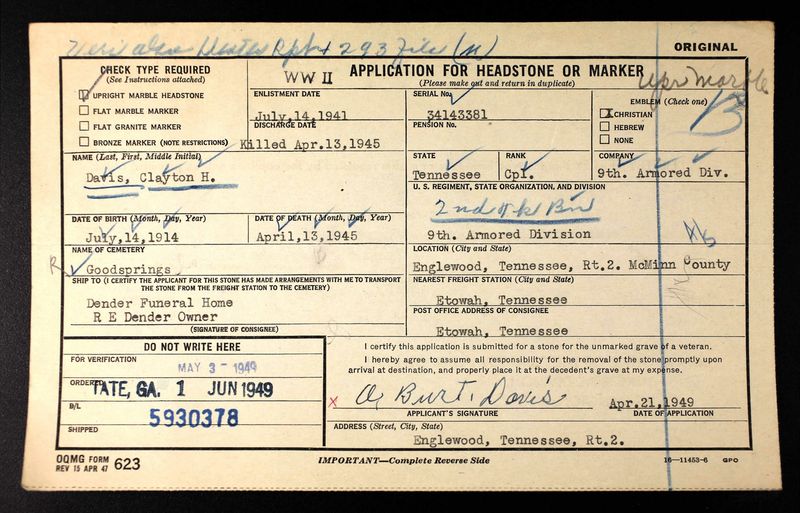 Veri also 293 file (M)
ORIGINAL
CHECK TYPE REQUIRED
(See Instructions attached)
UPRIGHT MARBLE HEADSTONE
FLAT MARBLE MARKER
FLAT GRANITE MARKER
BRONZE MARKER (NOTE RESTRICTIONS)
WW II
APPLICATION FOR HEADSTONE OR MARKER
(Please make out and return in duplicate)
Upr Marble
ENLISTMENT DATE
July,14,1941
DISCHARGE DATE
Killed Apr.13,1945
SERIAL No.
34143381
PENSION No.
EMBLEM (Check one)
X CHRISTIAN
HEBREW
NONE
B
NAME (Last, First, Middle Initial)
Davis, Clayton H.
STATE
Tennessee
RANK
Cpl.
COMPANY
9th. Armored Div.
U. S. REGIMENT, STATE ORGANIZATION, AND DIVISION
9th. Armored Division
DATE OF BIRTH (Month, Day, Year)
July,14,1914
DATE OF DEATH (Month, Day, Year)
April,13,1945
NAME OF CEMETERY
R
Goodsprings
LOCATION (City and State)
Englewood, Tennessee, Rt.2. McMinn County
SHIP TO (I CERTIFY THE APPLICANT FOR THIS STONE HAS MADE ARRANGEMENTS WITH ME TO TRANSPORT
THE STONE FROM THE FREIGHT STATION TO THE CEMETERY)
Dender Funeral Home
R E Dender Owner
(SIGNATURE OF CONSIGNEE)
NEAREST FREIGHT STATION (City and State)
Etowah, Tennessee
POST OFFICE ADDRESS OF CONSIGNEE
Etowah, Tennessee
DO NOT WRITE HERE
FOR VERIFICATION
MAY 3 - 1949
ORDERED
TATE, GA. 1 JUN 1949
B/L
5930378
SHIPPED
I certify this application is submitted for a stone for the unmarked grave of a veteran.
I hereby agree to assume all responsibility for the removal of the stone promptly upon
arrival at destination, and properly place it at the decedent's grave at my expense.
x
O, Burt. Davis
Apr.21,1949
APPLICANT'S SIGNATURE
DATE OF APPLICATION
ADDRESS (Street, City, State)
Englewood, Tennessee, Rt.2.
OQMG FORM
REV 15 APR 47 623
IMPORTANT—Complete Reverse Side
16—11453-6 GPO